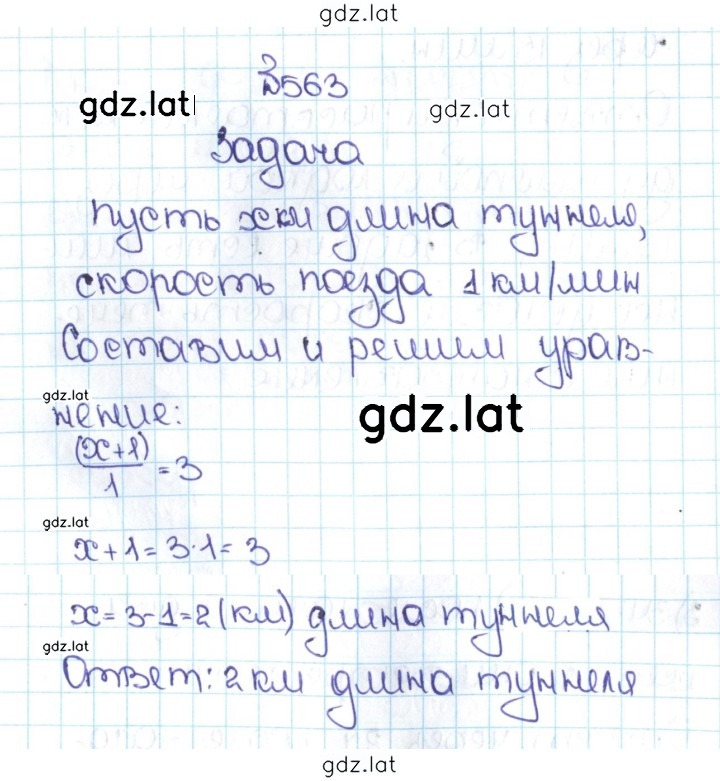 gdz.lat
№563
gdz.lat gdz.lat
Задача
пусть x км длина туннеля,
скорость поезда 1 км/мин
Составим и решим урав-
gdz.lat
нение: gdz.lat
(x+1)/1 = 3
gdz.lat
x + 1 = 3·1 = 3
x = 3-1=2 (км) длина туннеля
gdz.lat
Ответ: 2 км длина туннеля
gdz.lat